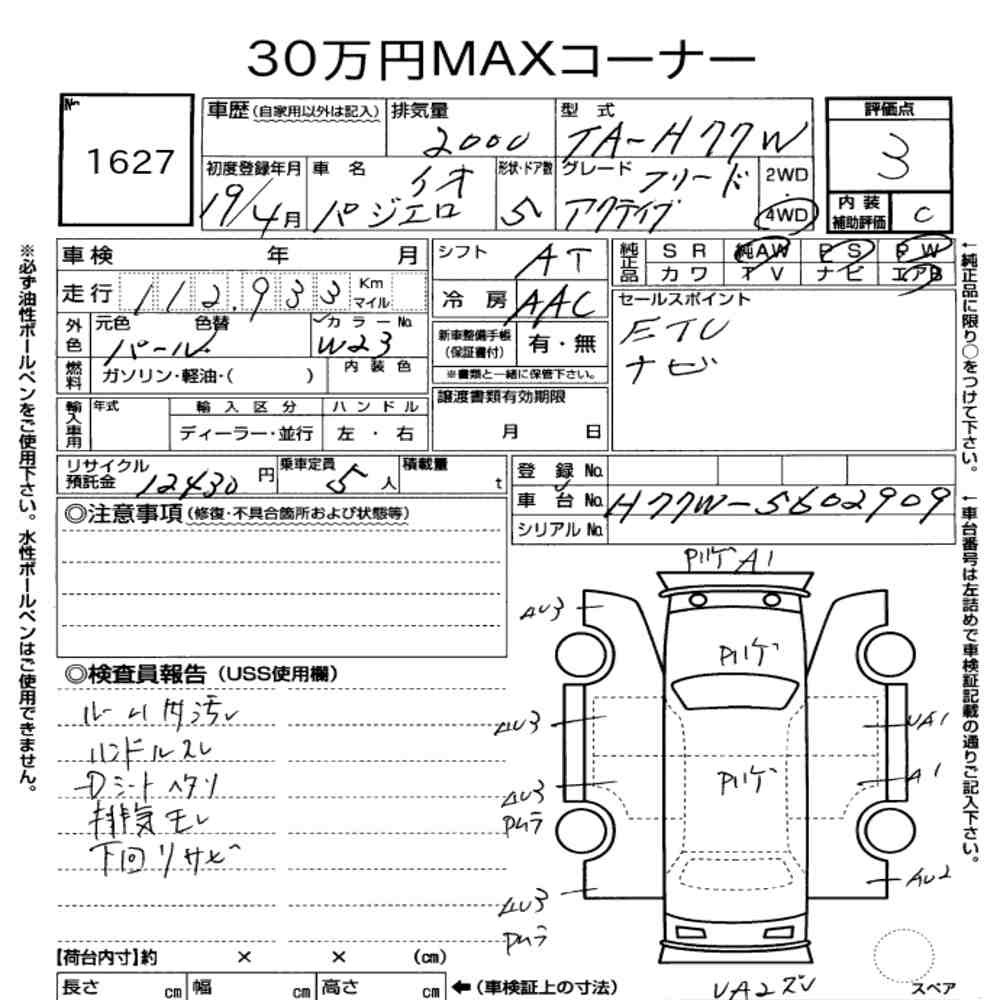 30万円MAXコーナー
No. 1627
車歴(自家用以外は記入) 排気量 2000 型式 TA-H77W
初度登録年月 19/4月 車名 パジェロイオ 形状・ドア数 5 グレード アクティブフリード 2WD・4WD
評価点 3
内装補助評価 C
車検 年 月
走行 112,933 Km マイル
外色 元色 パール 色替 カラーNo. W23
燃料 ガソリン・軽油・( ) 内装色
輸入車用 年式 輸入区分 ディーラー・並行 ハンドル 左・右
シフト AT
冷房 AAC
新車整備手帳(保証書付) 有・無
※書類と一緒に保管下さい。
譲渡書類有効期限 月 日
純正品 SR 純AW PS PW
カワ TV ナビ エアB
セールスポイント
ETC
ナビ
リサイクル預託金 12430円 乗車定員 5人 積載量 t
登録No.
車台No. H77W-5602909
シリアルNo.
◎注意事項(修復・不具合箇所および状態等)
◎検査員報告(USS使用欄)
ルーム内汚レ
ハンドルスレ
Dシートヘタリ
排気モレ
下回リサビ
PハゲA1
AU3
Pハゲ
AU3
UA1
Pハゲ
AU3
Pムラ
A1
AU2
AU3
Pムラ
UA2ズレ
スペア
【荷台内寸】約 × × (cm)
長さ cm 幅 cm 高さ cm ←(車検証上の寸法)
※必ず油性ボールペンをご使用下さい。水性ボールペンはご使用できません。
←純正品に限り○をつけて下さい。
←車台番号は左詰めで車検証記載の通りご記入下さい。